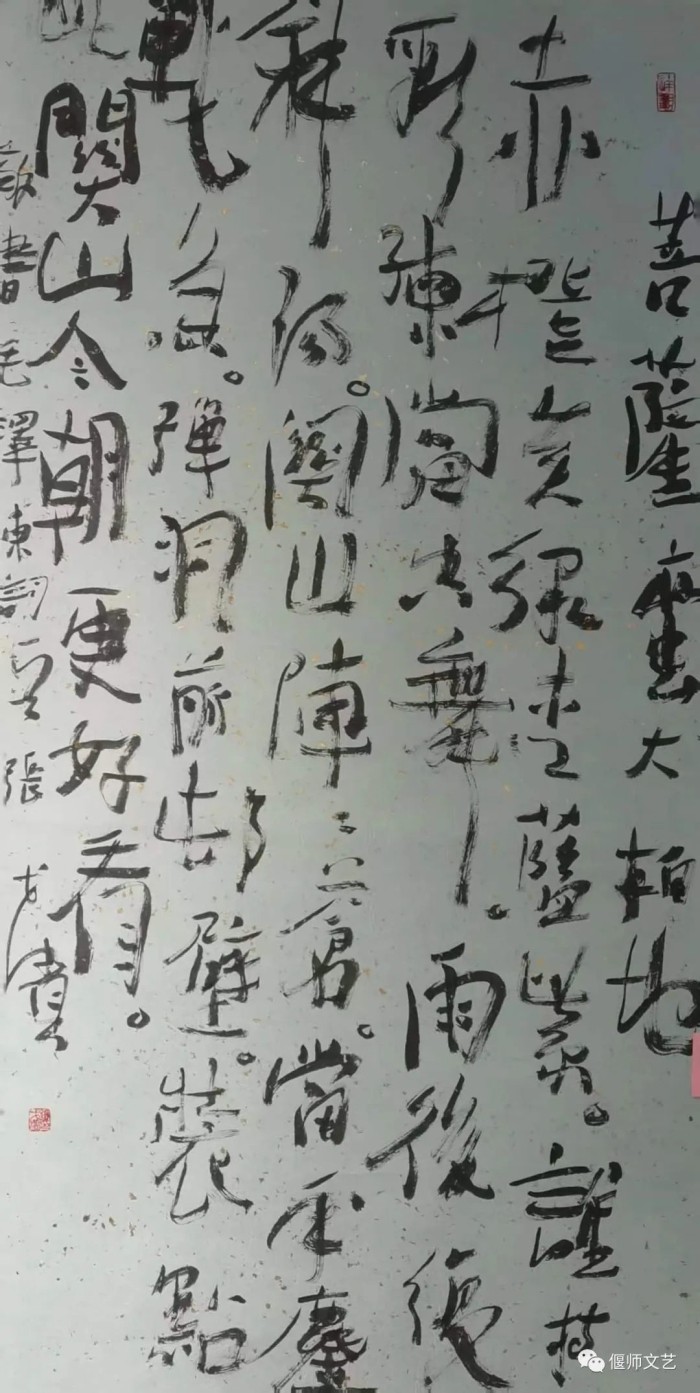 菩薩蠻大柏地
赤橙黃綠青藍紫。誰持
彩練當空舞。雨後復
斜陽。關山陣々蒼。當年鏖
戰急。彈洞前邨壁。裝點
此關山今朝更好看。
敬書毛澤東詞 張
偃师文艺